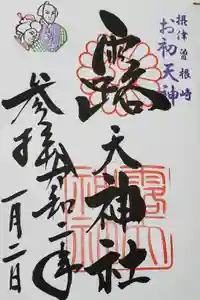 摂津曽根崎
お初天神
露
天神社
参拝
令和二年
一月二日